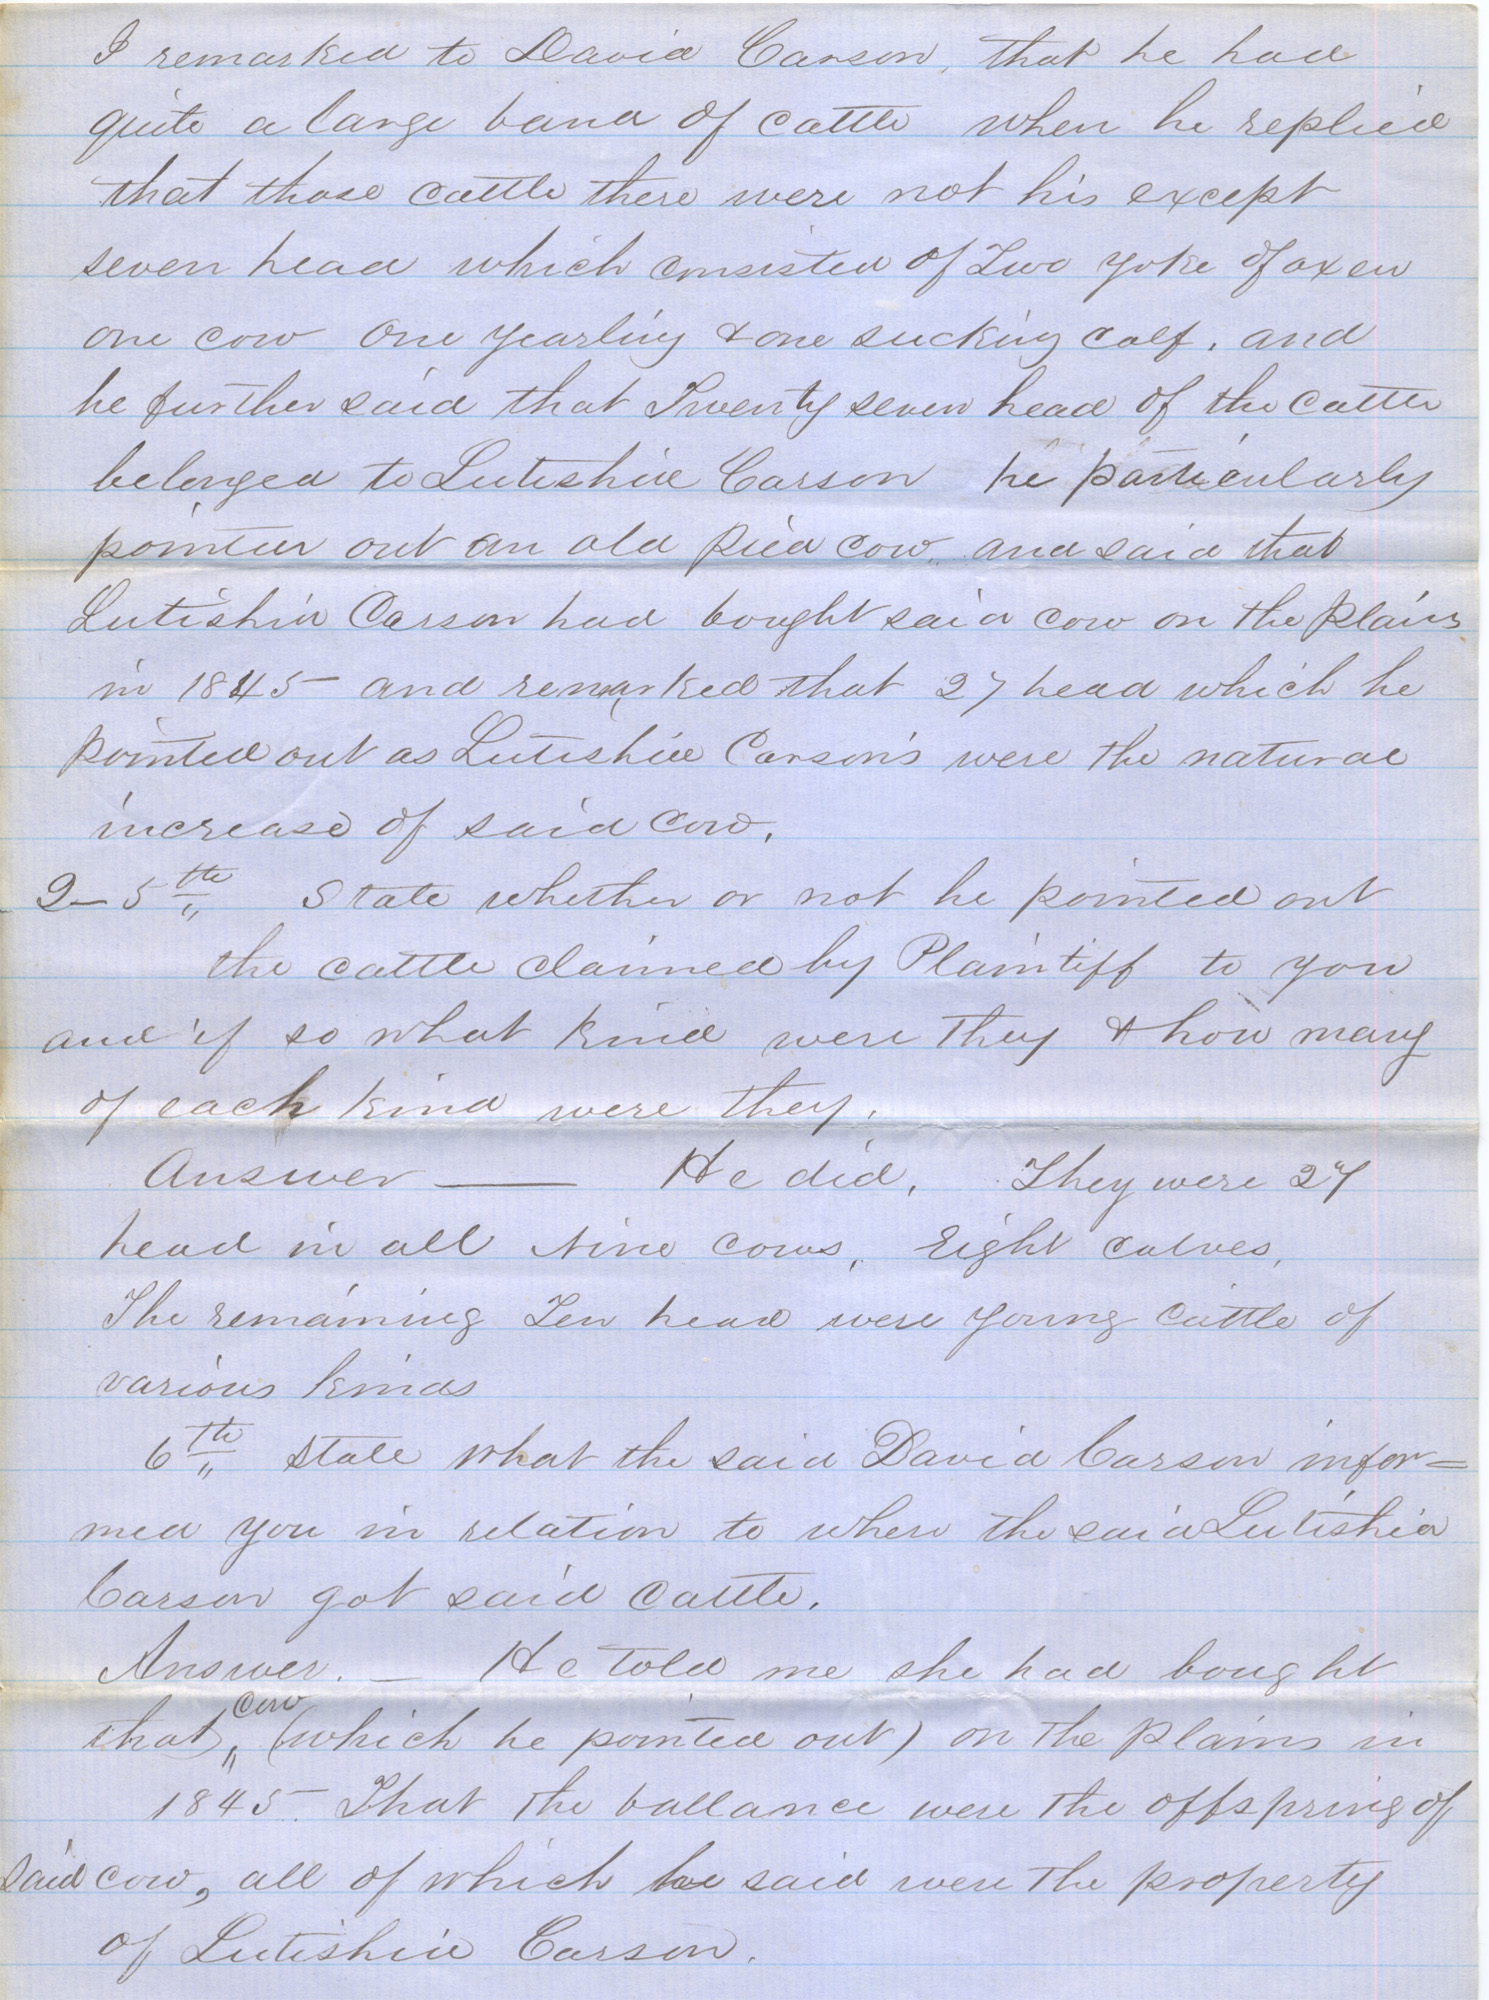 I remarked to David Carson, that he had
quite a large band of cattle when he replied
that those cattle there were not his except
seven head which consisted of Two yoke of oxen
one cow one yearling & one sucking calf. and
he further said that Twenty seven head of the cattle
belonged to Lutishia Carson he particularly
pointed out an old pied cow, and said that
Lutishia Carson had bought said cow on the plains
in 1845 and remarked that 27 head which he
pointed out as Lutishia Carson's were the natural
increase of said cow.
Q– 5th State whether or not he pointed out
the cattle claimed by Plaintiff to you
and if so what kind were they & how many
of each kind were they.
Answer —— He did. They were 27
head in all Nine cows, Eight calves,
The remaining Ten head were young cattle of
various kinds
6th State what the said David Carson infor=
med you in relation to where the said Lutishia
Carson got said cattle.
Answer. – He told me she had bought
that cow (which he pointed out) on the plains in
1845. That the ballance were the offspring of
said cow, all of which he said were the property
of Lutishia Carson.